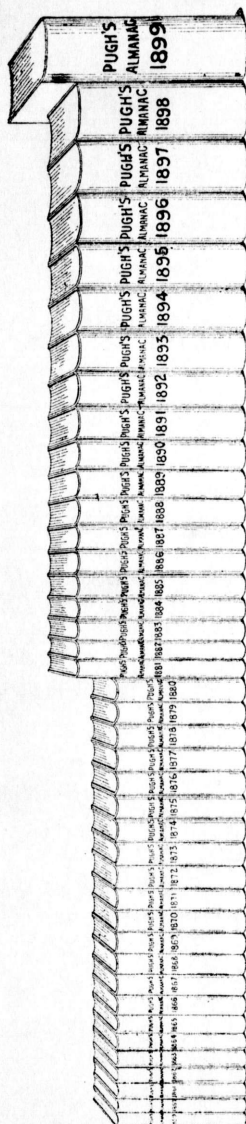 PUGH'S
ALMANAC
1899
PUGH'S
ALMANAC
1898
PUGH'S
ALMANAC
1897
PUGH'S
ALMANAC
1896
PUGH'S
ALMANAC
1895
PUGH'S
ALMANAC
1894
PUGH'S
ALMANAC
1893
PUGH'S
ALMANAC
1892
PUGH'S
ALMANAC
1891
PUGH'S
ALMANAC
1890
PUGH'S
ALMANAC
1889
PUGH'S
ALMANAC
1888
PUGH'S
ALMANAC
1887
PUGH'S
ALMANAC
1886
PUGH'S
ALMANAC
1885
PUGH'S
ALMANAC
1884
PUGH'S
ALMANAC
1883
PUGH'S
ALMANAC
1882
PUGH'S
ALMANAC
1881
PUGH'S
ALMANAC
1880
PUGH'S
ALMANAC
1879
PUGH'S
ALMANAC
1878
PUGH'S
ALMANAC
1877
PUGH'S
ALMANAC
1876
PUGH'S
ALMANAC
1875
PUGH'S
ALMANAC
1874
PUGH'S
ALMANAC
1873
PUGH'S
ALMANAC
1872
PUGH'S
ALMANAC
1871
PUGH'S
ALMANAC
1870
PUGH'S
ALMANAC
1869
PUGH'S
ALMANAC
1868
PUGH'S
ALMANAC
1867
PUGH'S
ALMANAC
1866
1865
1864